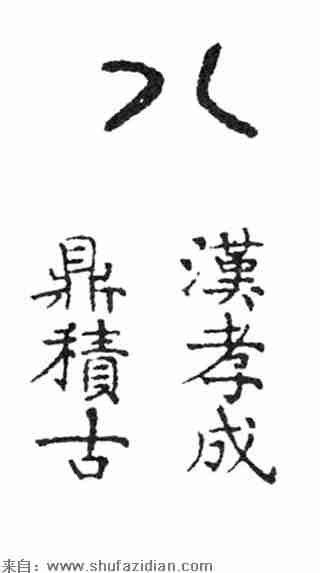 八
漢孝成
鼎積古
来自：www.shufazidian.com